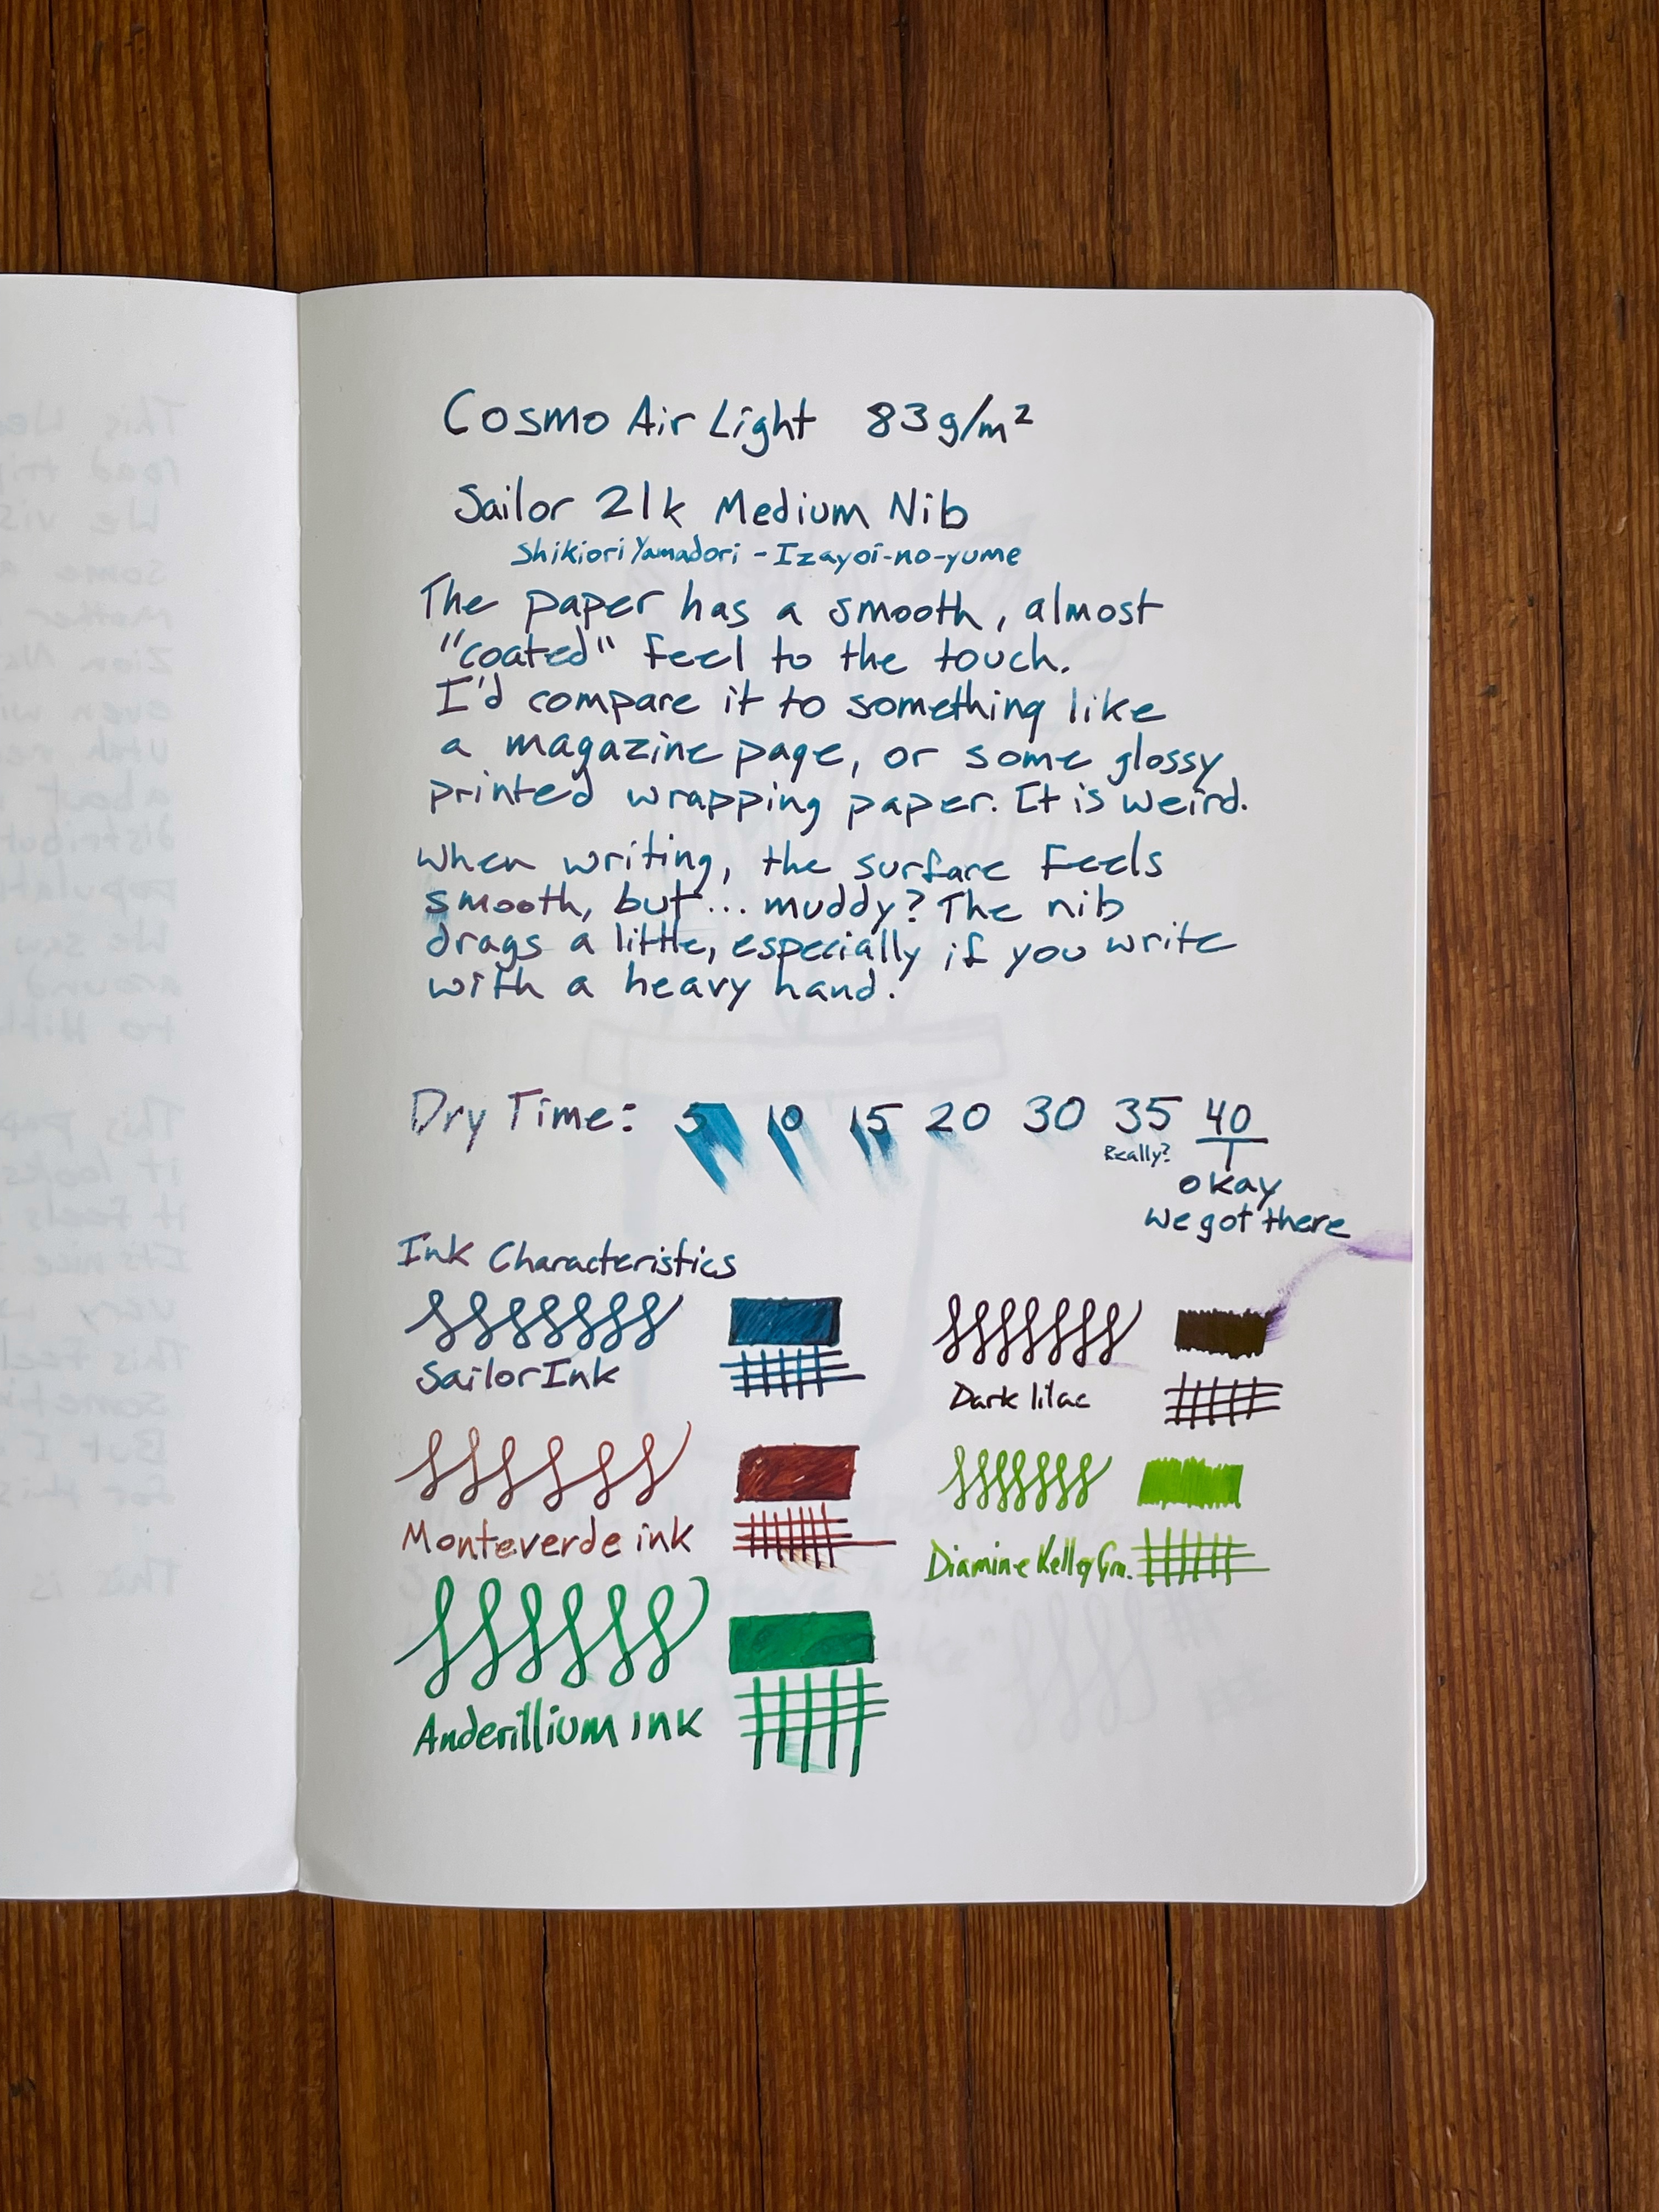 Cosmo Air Light 83g/m²
Sailor 21k Medium Nib
Shikiori Yamadori - Izayoi-no-yume
The paper has a smooth, almost
"coated" feel to the touch.
I'd compare it to something like
a magazine page, or some glossy
printed wrapping paper. It is weird.
When writing, the surface feels
smooth, but... muddy? The nib
drags a little, especially if you write
with a heavy hand.
Dry Time: 5 10 15 20 30 35 40
Really?
okay
we got there
Ink Characteristics
Sailor Ink
Dark lilac
Monteverde ink
Diamine Kelly Grn.
Anderillium ink